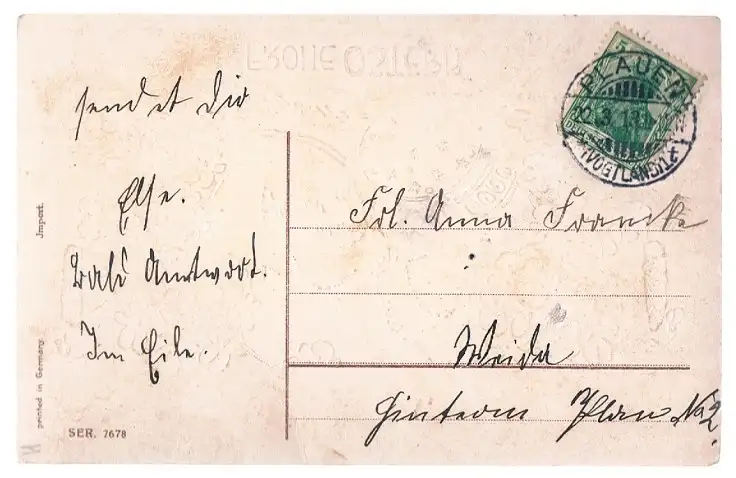 FROHE OSTERN
sendet dir
Else.
Bald Antwort.
Im Eile.
Import.
printed in Germany.
SER. 7678
5
PLAUEN
(VOGTLAND) 1
Frl. Anna Francke
Weida
Hinterm Plan No 2.